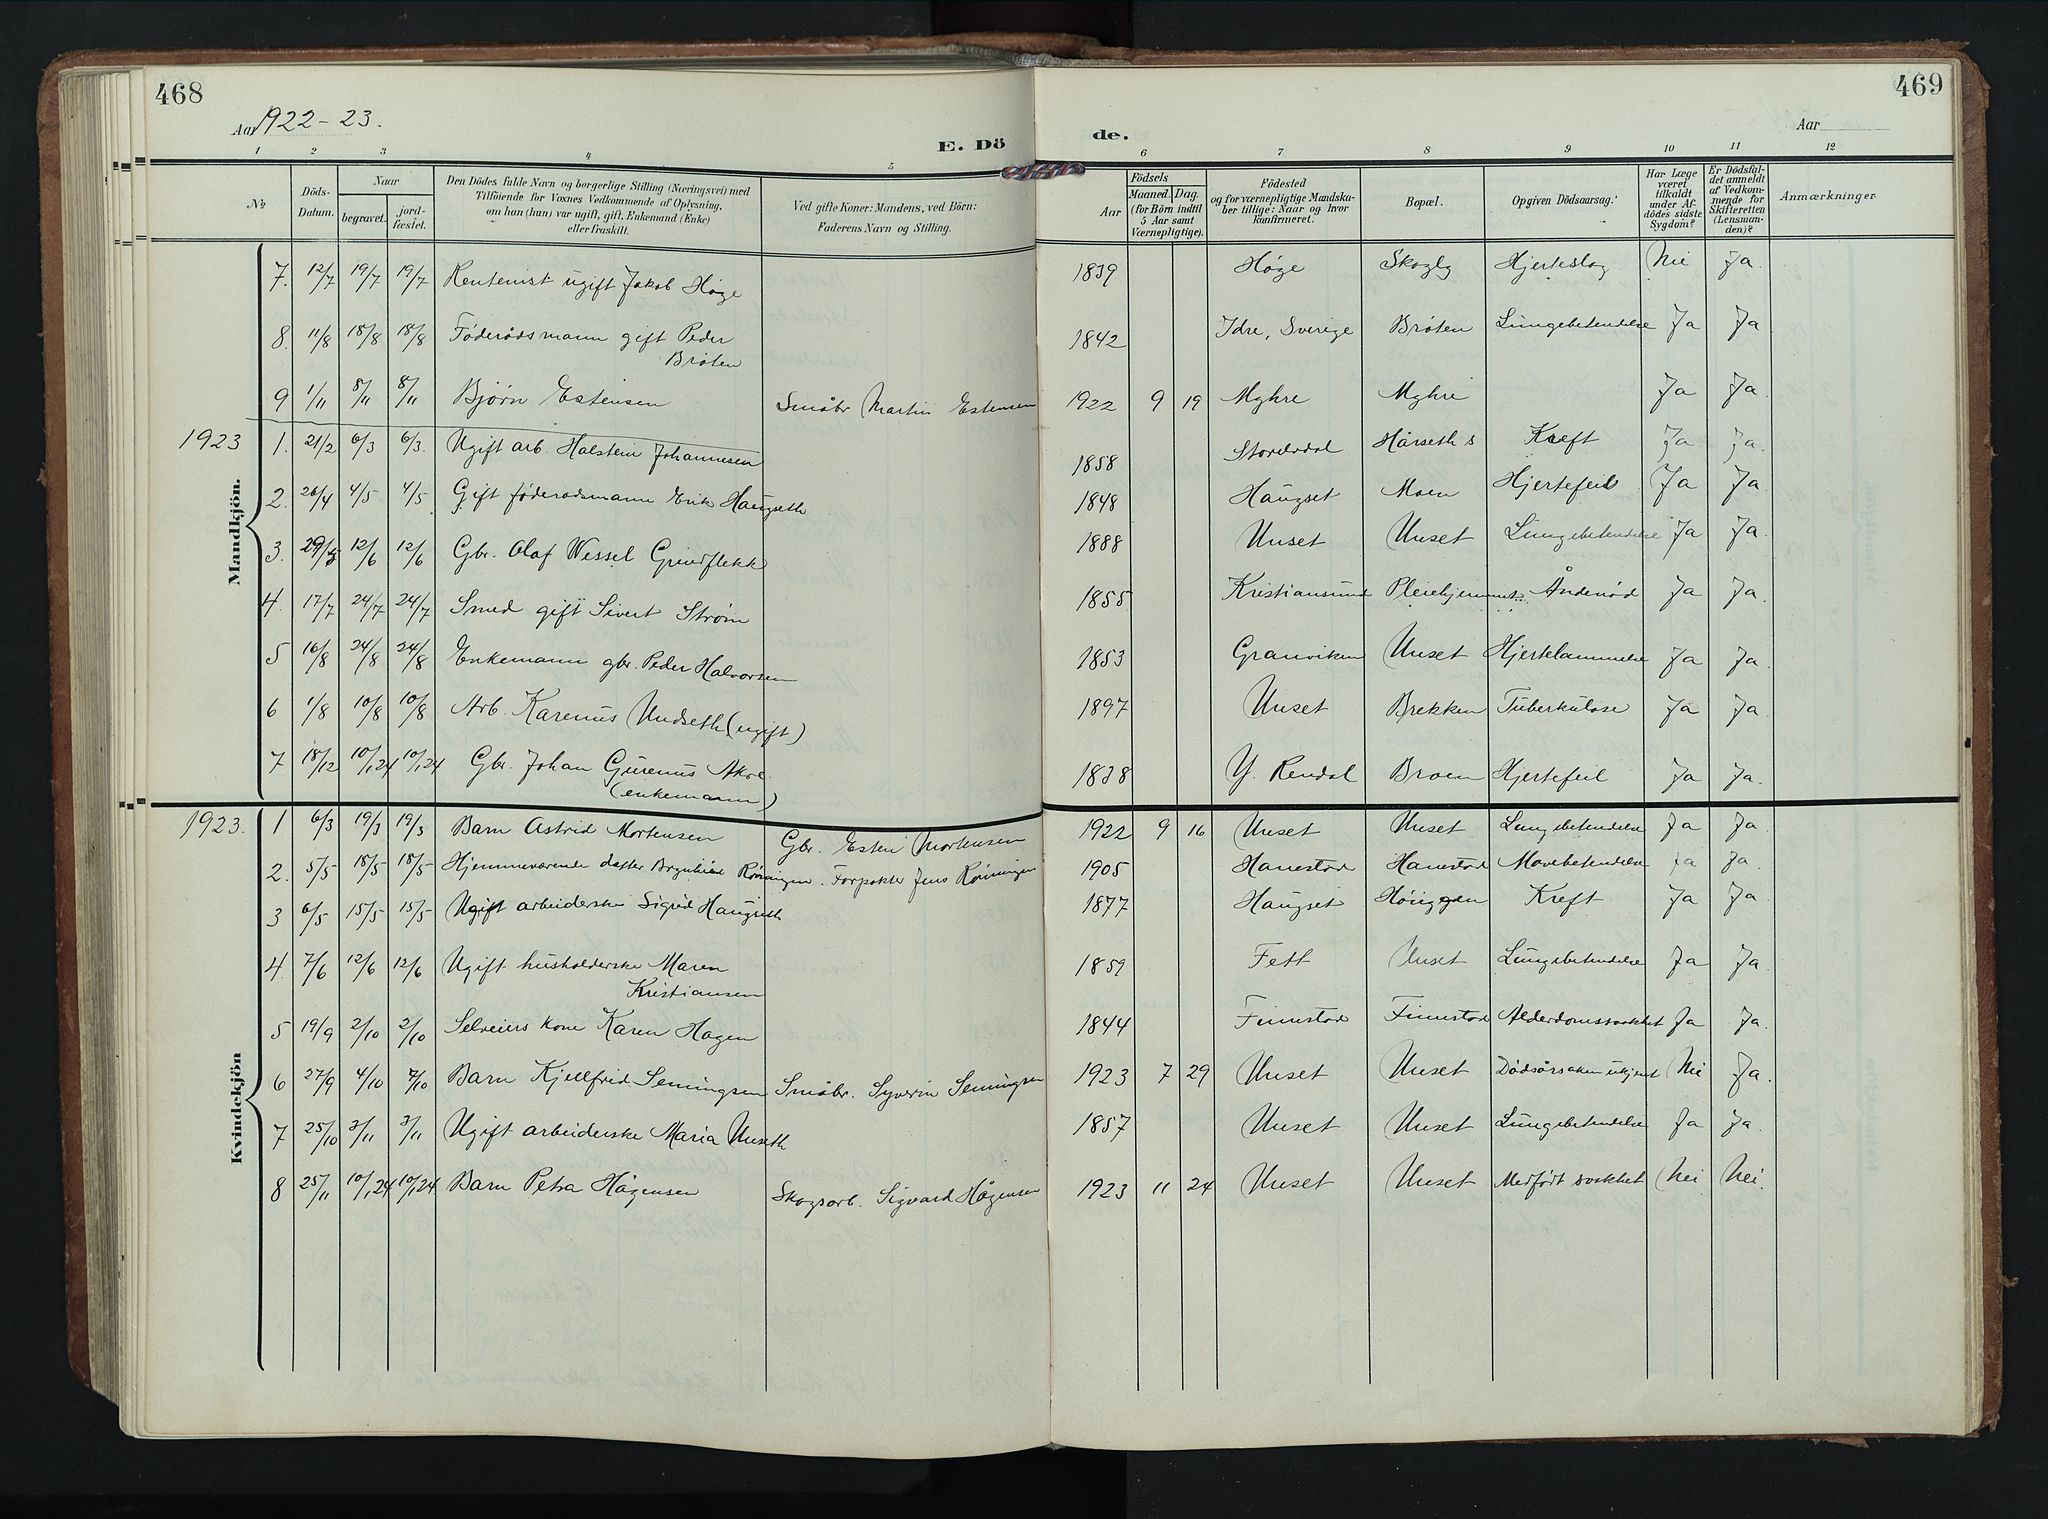 468
Aar 1922-23.
E. Dö
1 2 3 4 5
No
Döds-Datum.
Naar
begravet. jord-fæstet.
Den Dödes fulde Navn og borgerlige Stilling (Næringsvei) med
Tilföiende for Voxnes Vedkommende af Oplysning,
om han (hun) var ugift, gift, Enkemand (Enke)
eller fraskilt.
Ved gifte Koner: Mandens, ved Börn:
Faderens Navn og Stilling.
Mandkjön.
7. 12/7 19/7 19/7 Rentenist ugift Jakob Høge
8. 11/8 18/8 18/8 Føderådsmann gift Peder
Bröten
9 1/11 8/11 8/11 Bjørn Estensen Småbr Martin Estensen
1923 1. 21/2 6/3 6/3. Ugift arb. Halstein Johannesen
2. 26/4 4/5 4/5 Gift føderadsmann Erik Haugseth
3. 29/5 12/6 12/6 Gbr. Olaf Wessel Grindflekk
4. 17/7 24/7 24/7 Smed gift Sivert Strøm
5 16/8 24/8 24/8 Enkemann gbr. Peder Halvorsen
6 1/8 10/8 10/8 Arb. Karenus Undseth (ugift)
7 18/12 10/1 24 10/1 24 Gbr. Johan Gurenus Akre
(enkemann)
Kvindekjön
1923. 1 6/3 19/3 19/3 Barn Astrid Mortensen Gbr. Esten Mortensen
2. 5/5 18/5 18/5 Hjemmeværende datter Brynhild Rønningen. Forpakter Jens Rønningen
3 6/5 15/5 15/5 Ugift arbeiderske Sigrid Haugseth
4. 7/6 12/6 12/6 Ugift husholderske Maren
Kristiansen
5 19/9 2/10 2/10 Selveiers kone Karen Hagen
6 27/9 4/10 7/10 Barn Kjellfrid Semingsen Småbr. Syverin Semingsen
7 25/10 3/11 3/11 Ugift arbeiderske Maria Unseth
8 25/11 10/1 24 10/1 24 Barn Petra Hågensen Skogsarb. Sigvard Hågensen
469
de.
Aar
6 7 8 9 10 11 12
Födsels
Aar
Maaned. Dag.
(for Börn indtil
5 Aar samt
Værnepligtige).
Födested
og for værnepligtige Mandska-
ber tillige: Naar og hvor
konfirmeret.
Bopæl.
Opgiven Dödsaarsag.
Har Læge
været
tilkaldt
under Af-
dödes sidste
Sygdom?
Er Dödsfal-
det anmeldt
af Vedkom-
mende for
Skifteretten
(Lensman-
den)?
Anmærkninger.
1839 Høge Skogly Hjerteslag Nei Ja.
1842 Idre, Sverige Brøten Lungebetendelse Ja Ja
1922 9 19 Myhre Myhre Ja Ja.
1858 Storelvdal Hårseth s Kreft Ja Ja.
1848 Haugset Moen Hjertefeil Ja Ja.
1888 Unset Unset Lungebetendelse Ja Ja.
1855 Kristiansund Pleiehjemmet Åndenød Ja Ja.
1853 Granviken Unset Hjertelammelse Ja Ja.
1897 Unset Brekken Tuberkulose Ja Ja.
1838 Y. Rendal Broen Hjertefeil Ja Ja.
1922 9 16 Unset Unset Lungebetendelse Ja Ja.
1905 Hanestad Hanestad Mavebetendelse Ja Ja.
1877 Haugset Høiggen Kreft Ja Ja
1859 Fett Unset Lungebetendelse Ja Ja.
1844 Finnestad Finnestad Alderdomssvakhet Ja Ja.
1923 7 29 Unset Unset Dødsårsaken ukjent Nei Ja.
1857 Unset Unset Lungebetendelse Ja Ja.
1923 11 24 Unset Unset Medfødt svakhet Nei Nei.